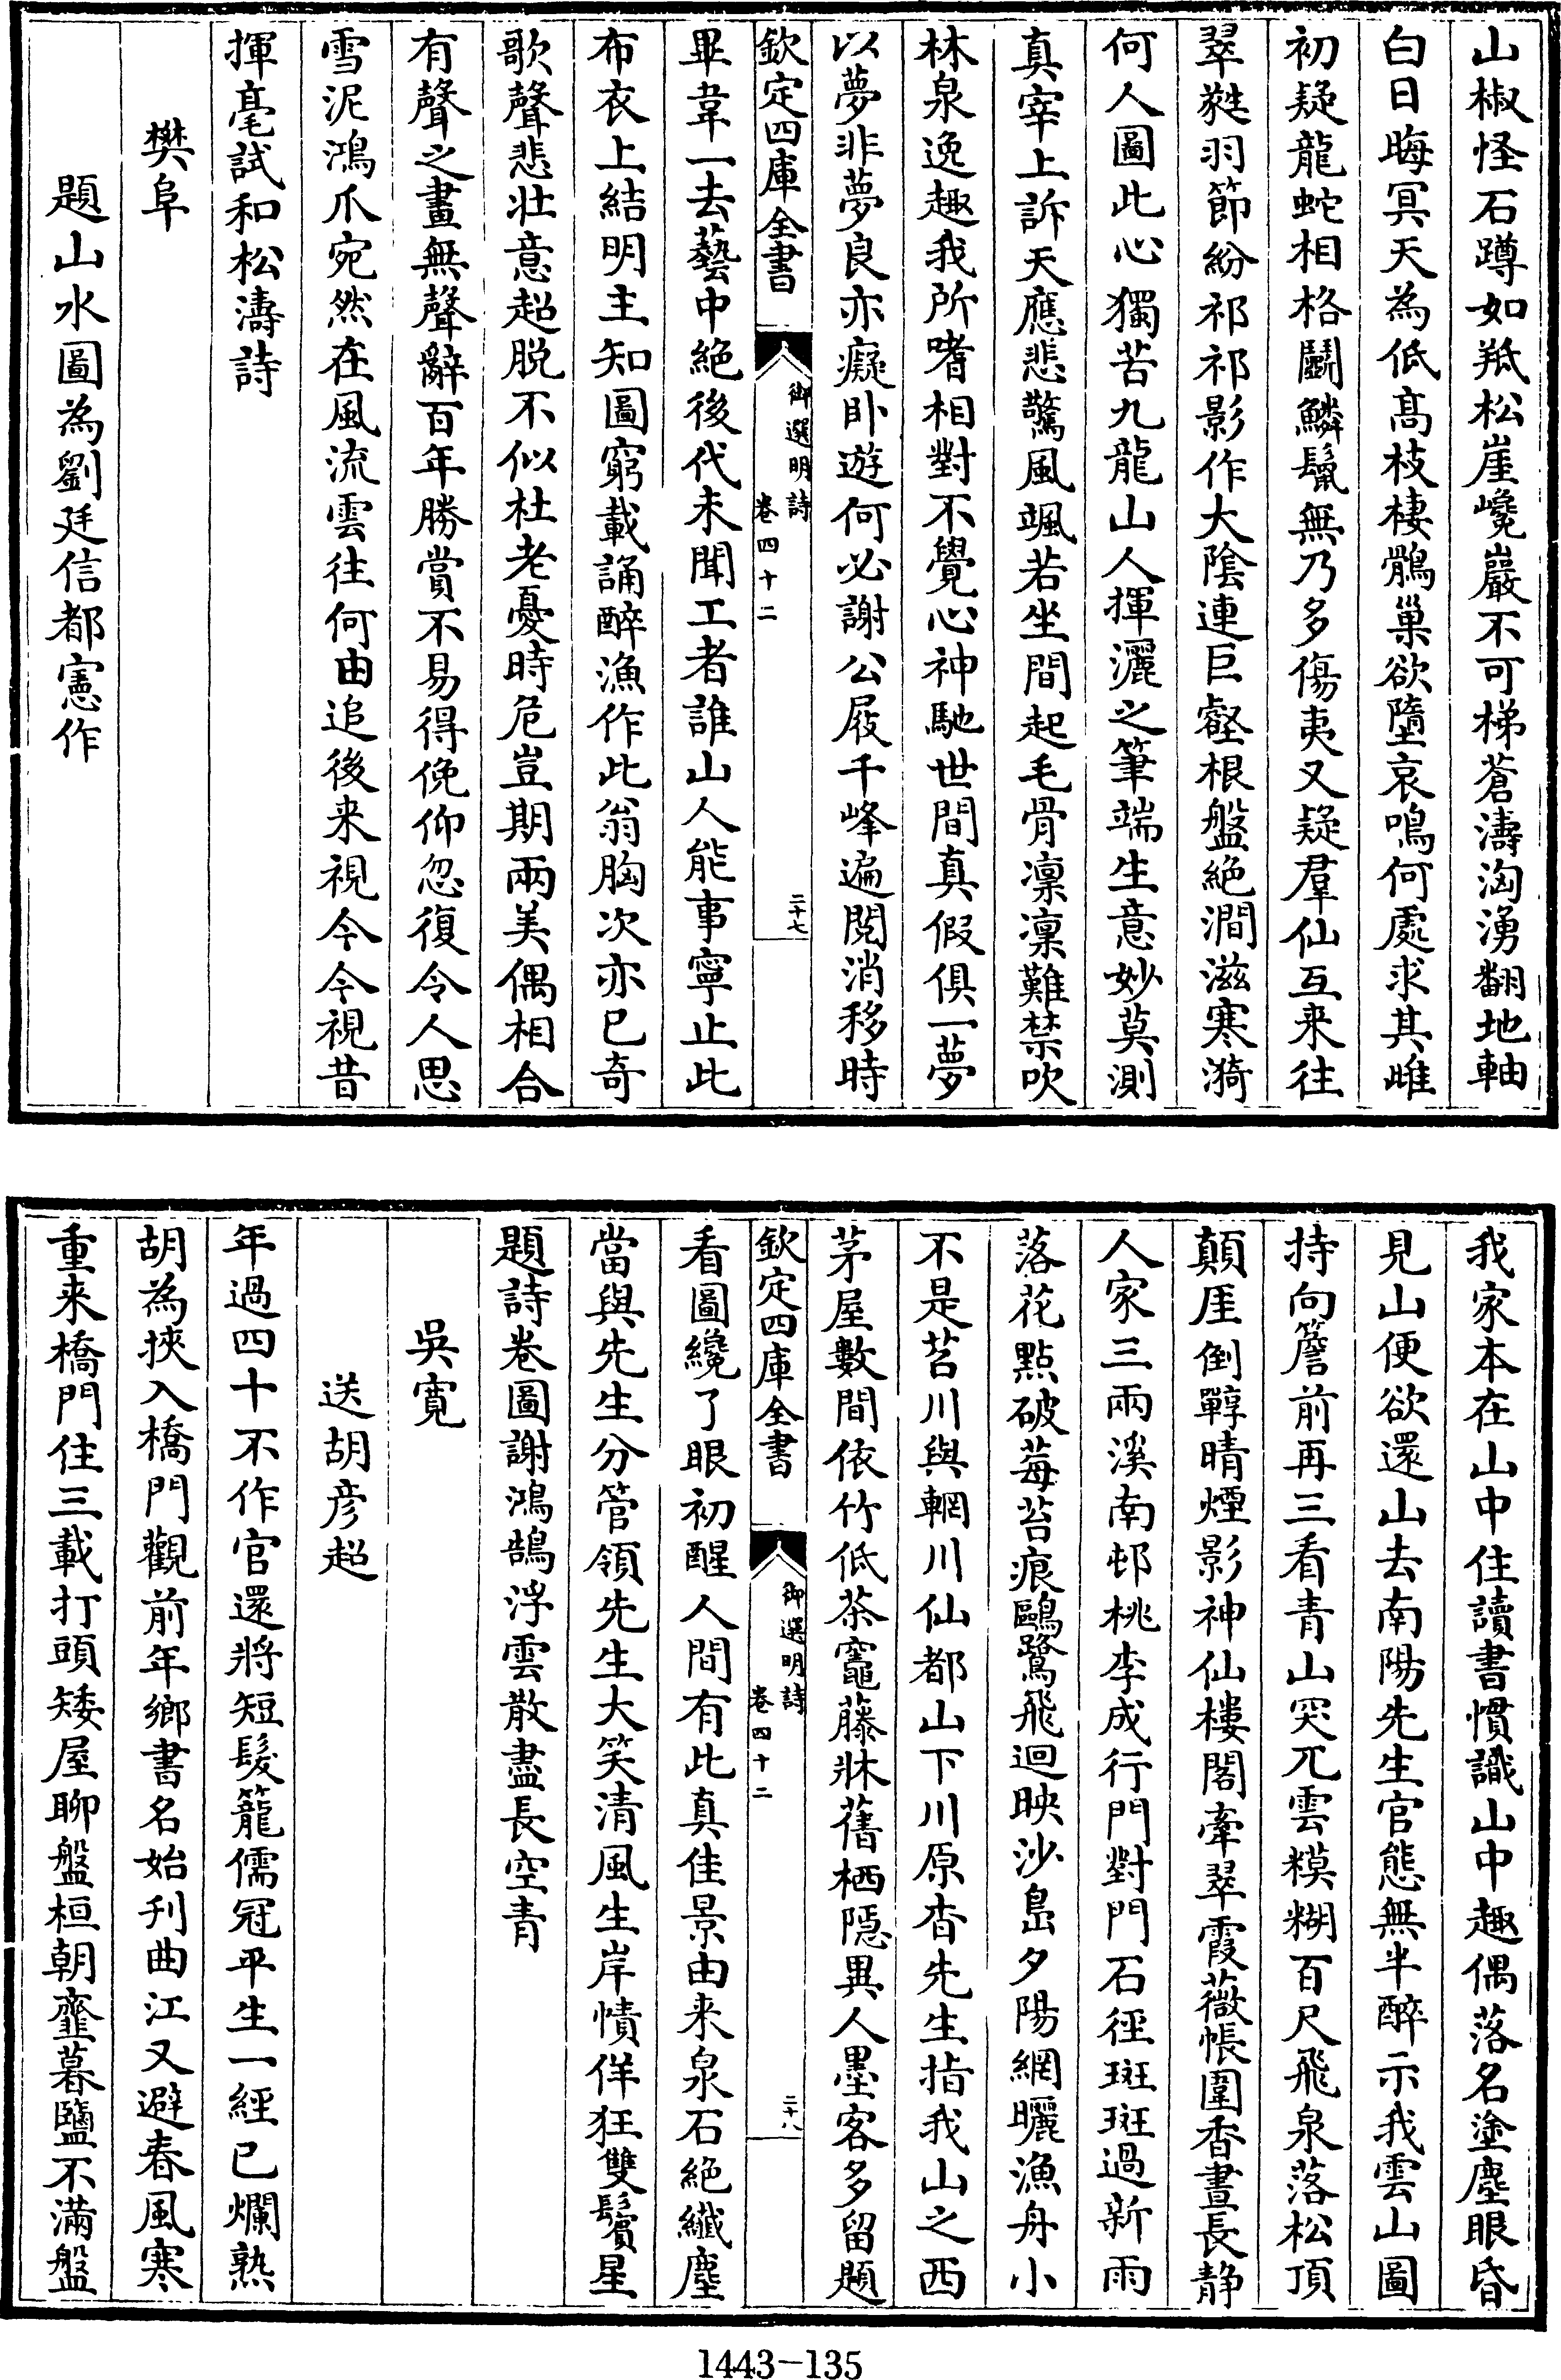 山椒怪石蹲如羝松崖巉巖不可梯蒼濤洶湧翻地軸
白日晦冥天為低髙枝棲鶻巢欲墮哀鳴何處求其雌
初疑龍蛇相格鬭鱗鬛無乃多傷夷又疑羣仙互来往
翠蕤羽節紛祁祁影作大陰連巨壑根盤絶澗滋寒漪
何人圖此心獨苦九龍山人揮灑之筆端生意妙莫測
真宰上訴天應悲驚風颯若坐間起毛骨凛凛難禁吹
林泉逸趣我所嗜相對不覺心神馳世間真假俱一夢
以夢非夢良亦癡卧遊何必謝公屐千峰遍閱消移時
欽定四庫全書
御選明詩
卷四十二
二十七
畢韋一去藝中絶後代未聞工者誰山人能事寧止此
布衣上結明主知圖窮載誦醉漁作此翁胸次亦已奇
歌聲悲壯意超脱不似杜老憂時危豈期兩美偶相合
有聲之畫無聲辭百年勝賞不易得俛仰忽復令人思
雪泥鴻爪宛然在風流雲往何由追後来視今今視昔
揮毫試和松濤詩
樊阜
題山水圖為劉廷信都憲作
我家本在山中住讀書慣識山中趣偶落名塗塵眼昏
見山便欲還山去南陽先生官態無半醉示我雲山圖
持向簷前再三看青山突兀雲糢糊百尺飛泉落松頂
顛厓倒蘸晴煙影神仙樓閣牽翠霞薇帳圍香晝長静
人家三兩溪南邨桃李成行門對門石徑斑斑過新雨
落花點破莓苔痕鷗鷺飛迴映沙島夕陽網曬漁舟小
不是苕川與輞川仙都山下川原杳先生指我山之西
茅屋數間依竹低茶竈藤牀舊栖隠異人墨客多留題
欽定四庫全書
御選明詩
卷四十二
二十八
看圖纔了眼初醒人間有此真佳景由来泉石絶纖塵
當與先生分管領先生大笑清風生岸幘佯狂雙鬢星
題詩卷圖謝鴻鵠浮雲散盡長空青
吳寛
送胡彦超
年過四十不作官還將短髮籠儒冠平生一經已爛熟
胡為挾入橋門觀前年鄉書名始刋曲江又避春風寒
重来橋門住三載打頭矮屋聊盤桓朝虀暮鹽不滿盤
1443-135